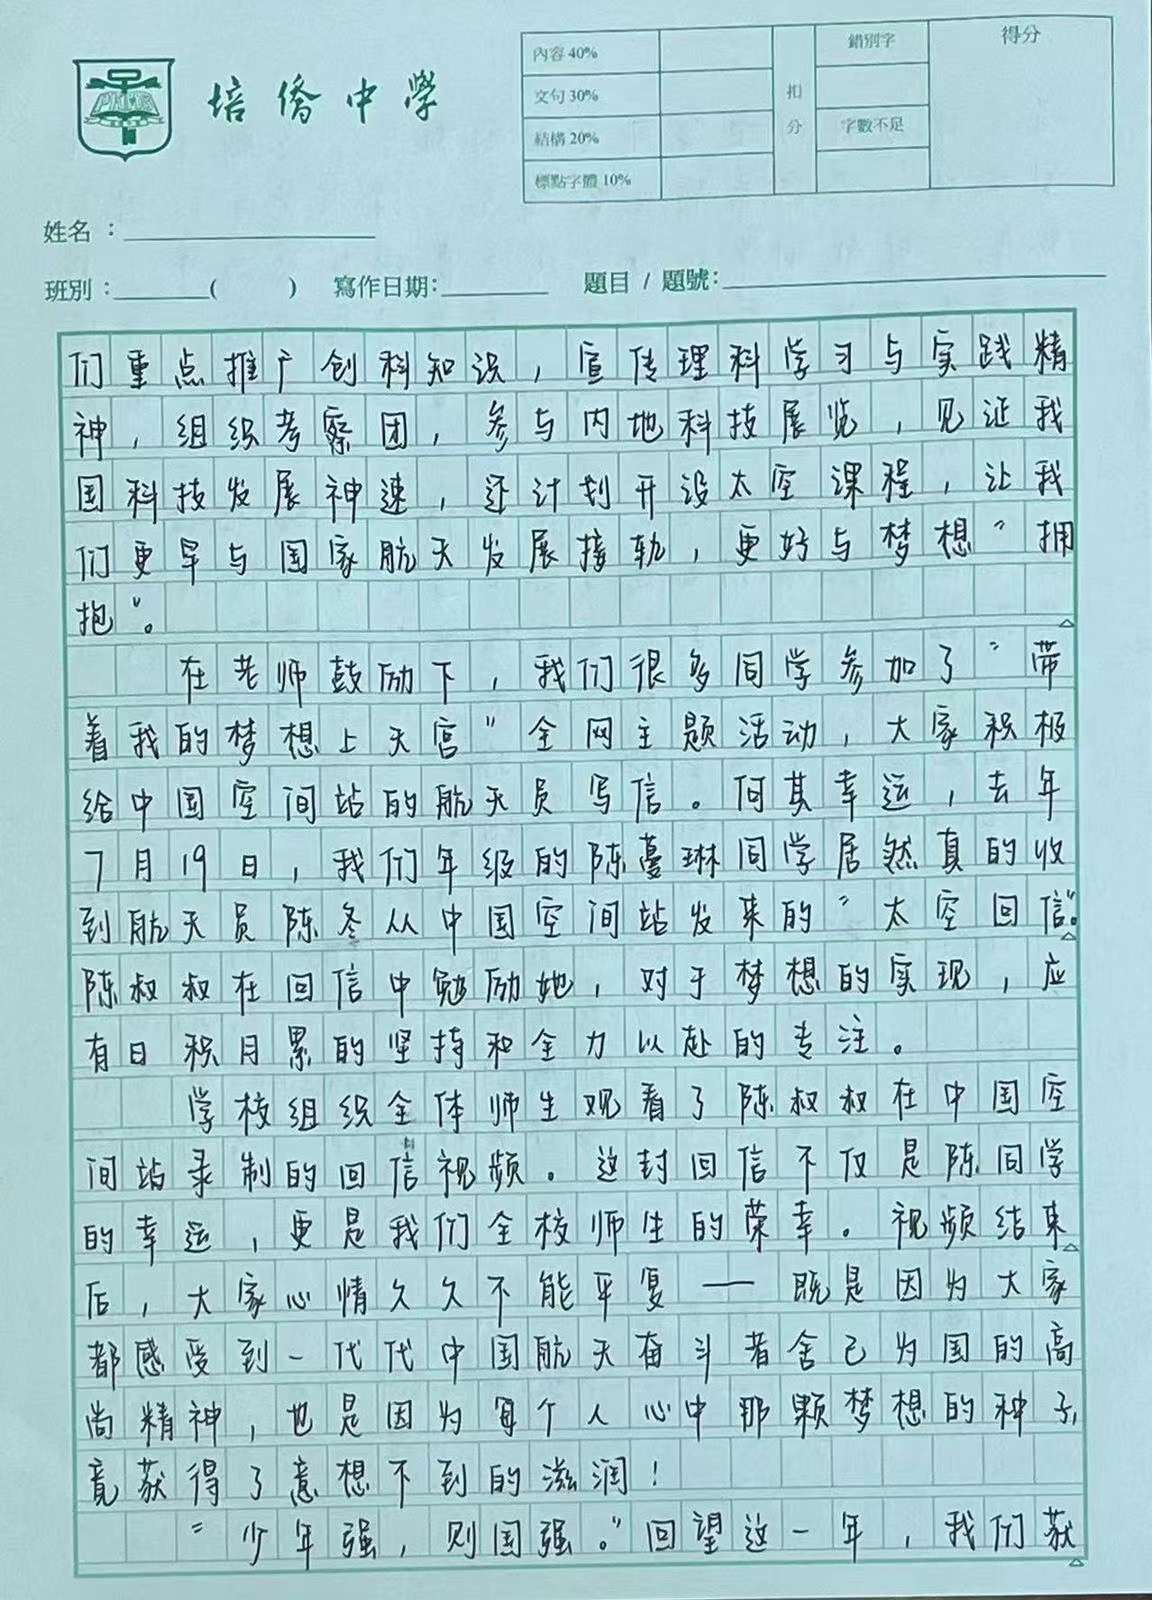 培僑中學
內容 40%
文句 30%
結構 20%
標點字體 10%
扣分
錯別字
字數不足
得分
姓名：
班別：( ) 寫作日期： 題目 / 題號：
们重点推广创科知识，宣传理科学习与实践精
神，组织考察团，参与内地科技展览，见证我
国科技发展神速，还计划开设太空课程，让我
们更早与国家航天发展接轨，更好与梦想“拥
抱”。
在老师鼓励下，我们很多同学参加了“带
着我的梦想上天宫”全网主题活动，大家积极
给中国空间站的航天员写信。何其幸运，去年
7月19日，我们年级的陈蔓琳同学居然真的收
到航天员陈冬从中国空间站发来的“太空回信”。
陈叔叔在回信中勉励她，对于梦想的实现，应
有日积月累的坚持和全力以赴的专注。
学校组织全体师生观看了陈叔叔在中国空
间站录制的回信视频。这封回信不仅是陈同学
的幸运，更是我们全校师生的荣幸。视频结束
后，大家心情久久不能平复——既是因为大家
都感受到一代代中国航天奋斗者舍己为国的高
尚精神，也是因为每个人心中那颗梦想的种子，
竟获得了意想不到的滋润！
“少年强，则国强。”回望这一年，我们获